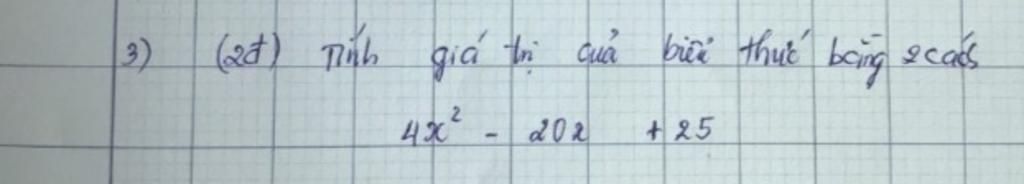 3) (2đ) Tính giá trị quả biểi thức bằng 2 cách
4x² - 20x + 25